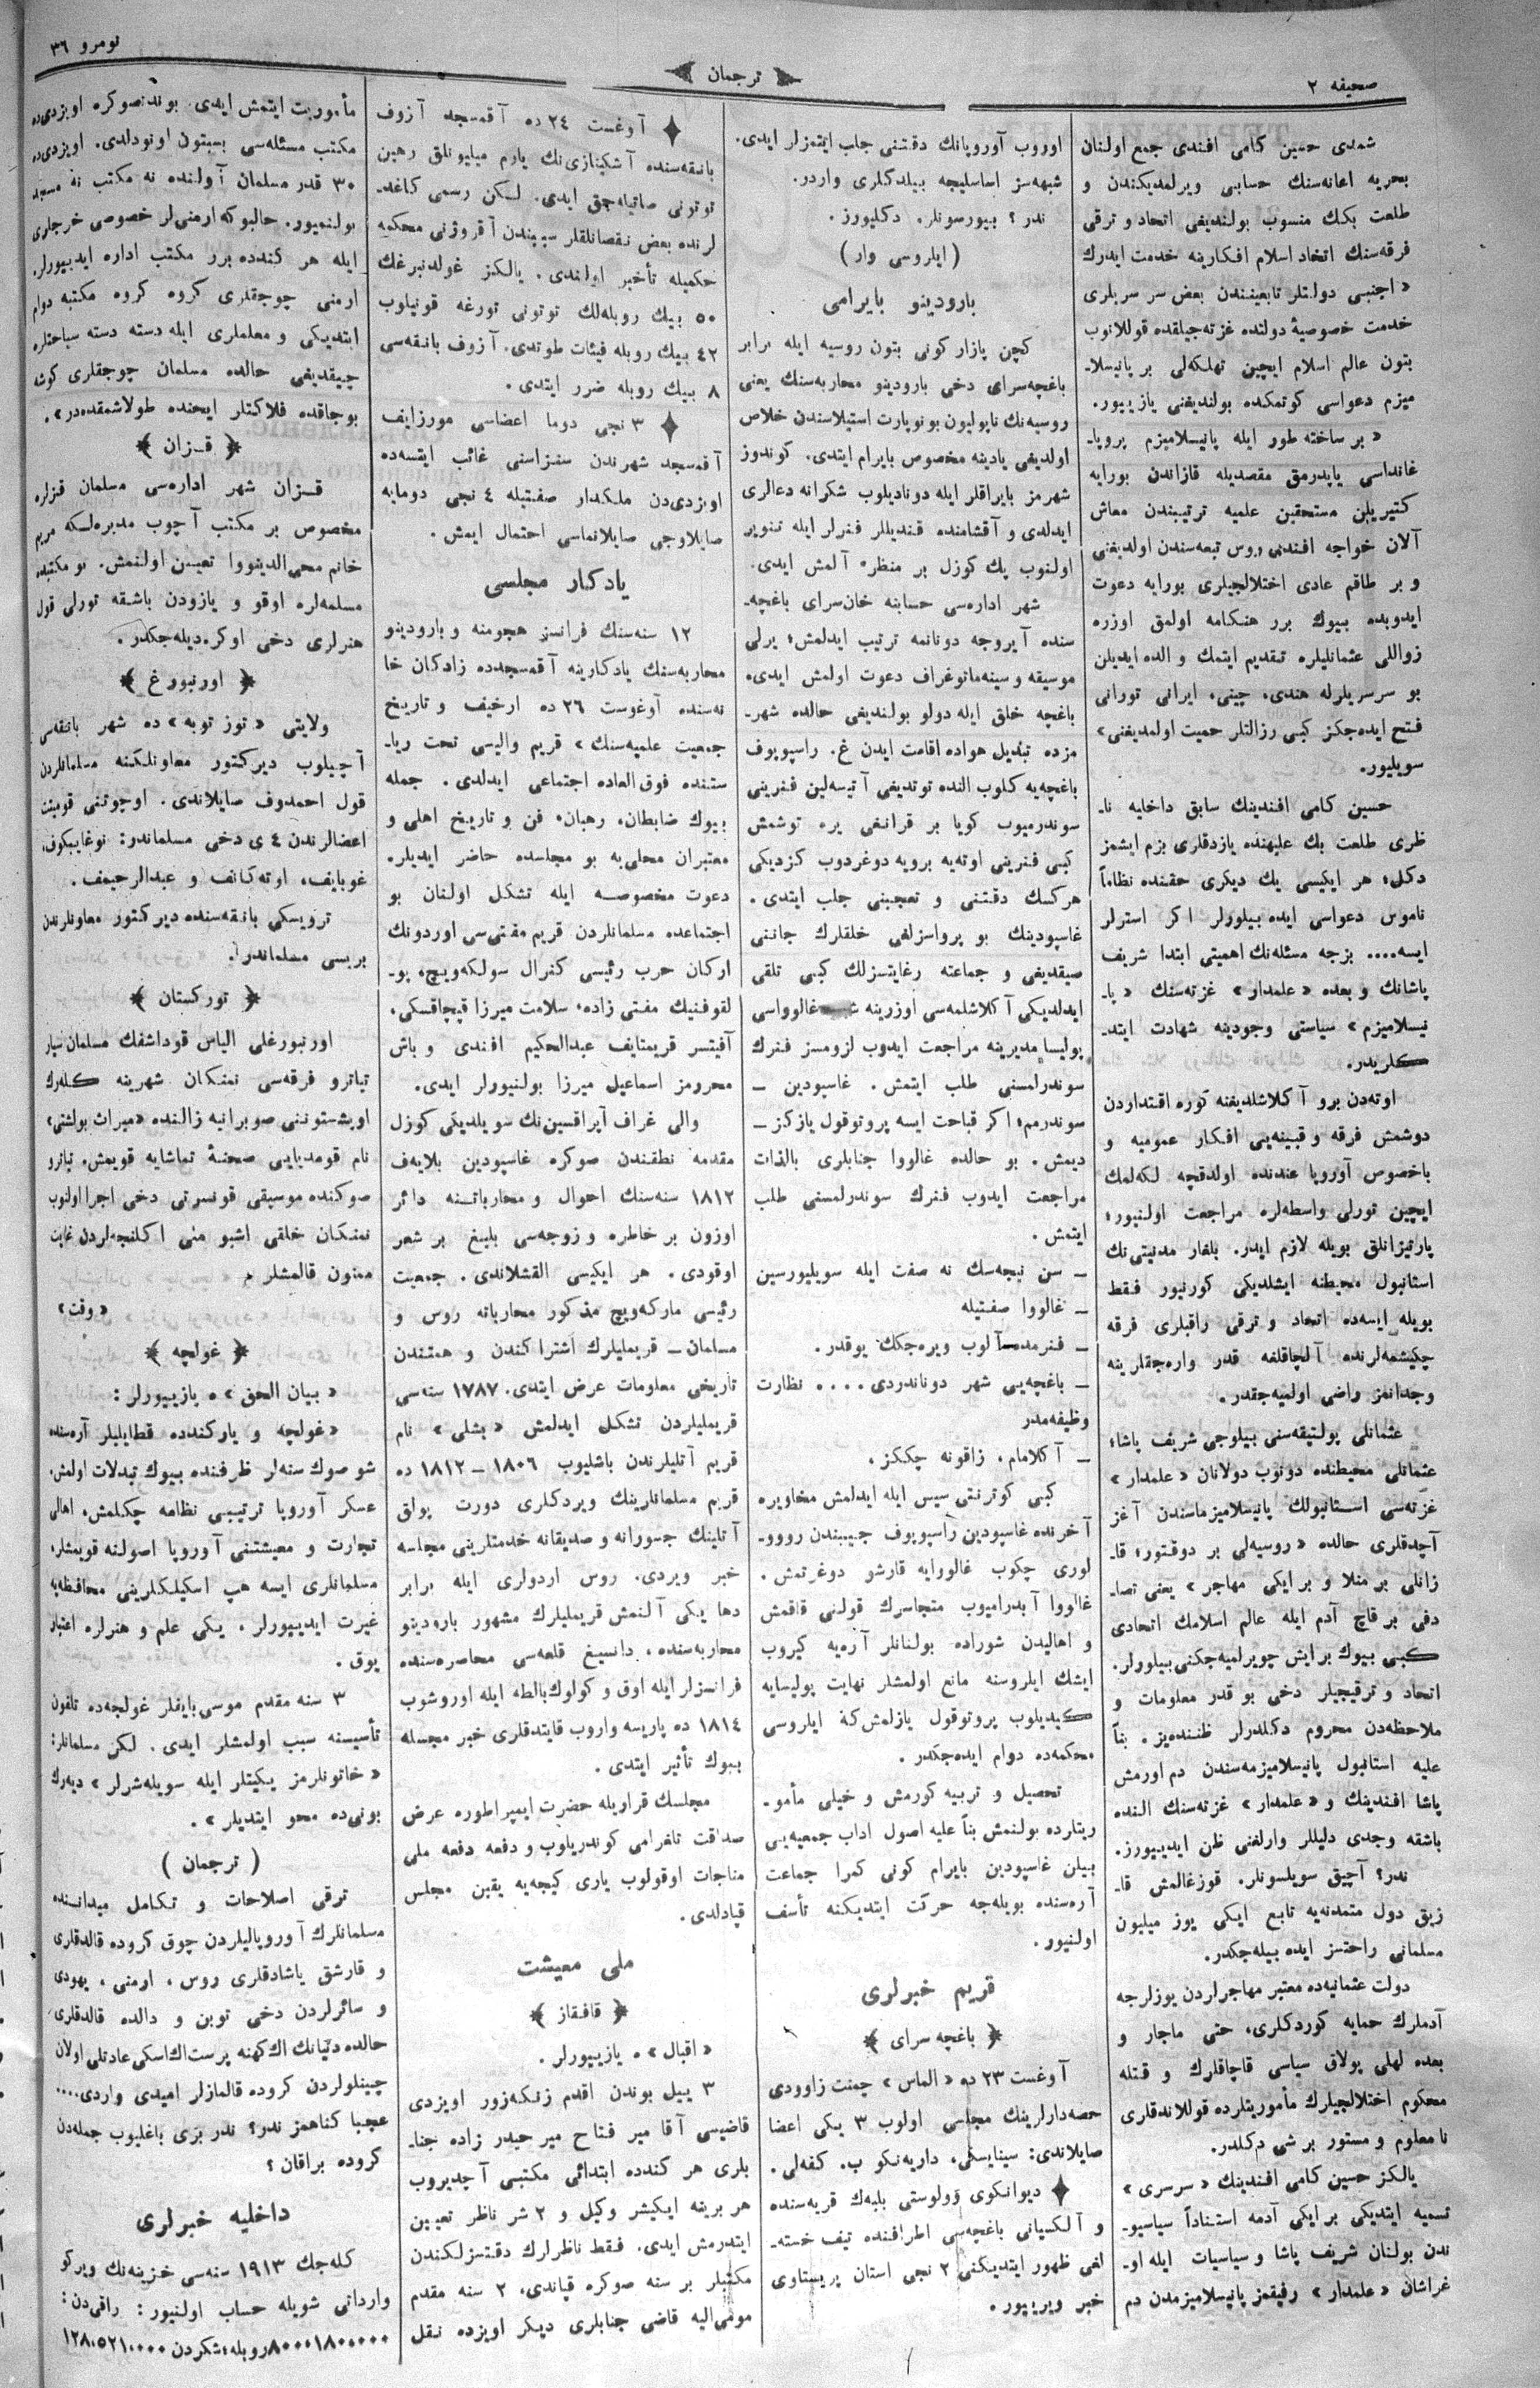 صحیفه ٢
ترجمان
نومرو ٣٦
شمدی حسین کامی افندی جمع اولنان
بحریه اعانه‌سنك حسابی ویرلمدیكندن و
طلعت بكك منسوب بولندیغی اتحاد و ترقی
فرقه‌سنك اتحاد اسلام افكارینه خدمت ایدرك
«اجنبی دولتلر تابعیتندن بعض سر سریلری
خدمت خصوصیهٔ دولتده غزته‌جیلقده قوللانوب
بتون عالم اسلام ایچین تهلكه‌لی بر پانیسلا-
میزم دعواسی كوتمكده بولندیغنی یازییور.
«بر ساخته طور ایله پانیسلامیزم پروپا-
غانداسی یاپدرمق مقصدیله قازاندن بورایه
كتیریلن مستحقین علمیه ترتیبندن معاش
آلان خواجه افندی روس تبعه‌سندن اولدیغنی
و بر طاقم عادی اختلالجیلری بورایه دعوت
ایدوبده بیوك برر هنكامه اولمق اوزره
زواللی عثمانلیلره تقدیم ایتمك و الده ایدیلن
بو سرسریلرله هندی، چینی، ایرانی تورانی
فتح ایده‌جكز كبی رزالتلر حمیت اولمدیغنی»
سویلیور.
حسین كامی افندینك سابق داخلیه نا-
ظری طلعت بك علیهنده یازدقلری بزم ایشمز
دكل؛ هر ایكیسی یك دیكری حقنده نظاماً
ناموس دعواسی ایده بیلورلر اكر استرلر
ایسه.... بزجه مسئله‌نك اهمیتی ابتدا شریف
پاشانك و بعده «علمدار» غزته‌سنك «پا-
نیسلامیزم» سیاستی وجودینه شهادت ایتد-
كلریدر.
اوته‌دن برو آكلاشلدیغنه كوره اقتداردن
دوشمش فرقه و قبینه‌یی افكار عمومیه و
باخصوص آوروپا عندنده اولدقچه لكه‌لمك
ایچین تورلی واسطه‌لره مراجعت اولنیور؛
پارتیزانلق بویله لازم ایدر. بلغار مدنیتی نك
استانبول محیطنه ایشلدیكی كورنیور فقط
بویله ایسه‌ده اتحاد و ترقی راقبلری فرقه
چكیشمه‌لرنده آلچاقلغه قدر واره‌جقلرینه
وجدانمز راضی اولمیه‌جقدر.
عثمانلی پولتیقه‌سنی بیلوجی شریف پاشا؛
عثمانلی محیطنده دونوب دولانان «علمدار»
غزته‌سی استانبولك پانیسلامیزماسندن آغز
آچدقلری حالده «روسیه‌لی بر دوقتور؛ قا-
زانلی بر منلا و بر ایكی مهاجر» یعنی تصا-
دفی بر قاچ آدم ایله عالم اسلامك اتحادی
كبی بیوك بر ایش چویرلمیه‌جكنی بیلورلر.
اتحاد و ترقیجیلر دخی بو قدر معلومات و
ملاحظه‌دن محروم دكلدرلر ظننده‌یز. بناً
علیه استانبول پانیسلامیزمه‌سندن دم اورمش
پاشا افندینك و «علمدار» غزته‌سنك النده
باشقه وجدی دلیللر وارلغنی ظن ایدییورز.
ندر؟ آچیق سویلسونلر. قوزغالمش قا-
زیق دول متمدنه‌یه تابع ایكی یوز میلیون
مسلمانی راحتسز ایده بیله‌جكدر.
دولت عثمانیه‌ده معتبر مهاجرلردن یوزلرجه
آدملرك حمایه كوردكلری، حتی ماجار و
بعده لهلی پولاق سیاسی قاچاقلرك و قتله
محكوم اختلالجیلرك مأموریتلرده قوللاندقلری
نا معلوم و مستور بر شی دكلدر.
یالكز حسین كامی افندینك «سرسری»
تسمیه ایتدیكی بر ایكی آدمه استناداً سیاسیو-
ندن بولنان شریف پاشا و سیاسیات ایله او-
غراشان «علمدار» رفیقمز پانیسلامیزمدن دم
اوروب آوروپانك دقتنی جلب ایتمزلر ایدی.
شبهه‌سز اساسلیجه بیلدكلری واردر.
ندر؟ بیورسونلر. دكلیورز.
(ایلروسی وار)
بارودینو بایرامی
كچن پازار كونی بتون روسیه ایله برابر
باغچه‌سرای دخی بارودینو محاربه‌سنك یعنی
روسیه‌نك ناپولیون بوناپارت استیلاسندن خلاص
اولدیغی یادینه مخصوص بایرام ایتدی. كوندوز
شهرمز بایراقلر ایله دونادیلوب شكرانه دعالری
ایدلدی و آقشامنده قندیللر فنرلر ایله تنویر
اولنوب پك كوزل بر منظره آلمش ایدی.
شهر اداره‌سی حسابنه خان‌سرای باغچه-
سنده آیروجه دونانمه ترتیب ایدلمش؛ یرلی
موسیقه و سینه‌ماتوغراف دعوت اولمش ایدی،
باغچه خلق ایله دولو بولندیغی حالده شهر-
مزده تبدیل هواده اقامت ایدن غ. راسپوپوف
باغچه‌یه كلوب النده توتدیغی آتیسه‌لین فنرینی
سوندرمیوب كویا بر قرانغی یره توشمش
كبی فنرینی اوته‌یه برویه دوغردوب كزدیكی
هركسك دقتنی و تعجبنی جلب ایتدی.
غاسپودینك بو پرواسزلغی خلقلرك جاننی
صیقدیغی و جماعته رغایتسزلك كبی تلقی
ایدلدیكی آكلاشلمه‌سی اوزرینه شهر غالوواسی
پولیسا مدیرینه مراجعت ایدوب لزومسز فنرك
سوندرلمسنی طلب ایتمش. غاسپودین —
سوندرمم؛ اكر قباحت ایسه پروتوقول یازكز —
دیمش. بو حالده غالووا جنابلری بالذات
مراجعت ایدوب فنرك سوندرلمسنی طلب
ایتمش.
— سن نیجه‌سك نه صفت ایله سویلیورسین
— غالووا صفتیله
— فنرمده آلوب ویره‌جكك یوقدر.
— باغچه‌یی شهر دوناندردی.... نظارت
وظیفه‌مدر
— آكلامام، زاقونه چككز،
كبی كوترنتی سیس ایله ایدلمش مخاویره
آخرنده غاسپودین راسپوپوف جیبندن رووو-
لوری چكوب غالووایه قارشو دوغرتمش.
غالووا آبدرامیوب متجاسرك قولنی قاقمش
و اهالیدن شوراده بولنانلر آره‌یه كیروب
ایشك ایلروسنه مانع اولمشلر نهایت پولیسایه
كیدیلوب پروتوقول یازلمش‌كه ایلروسی
محكمه‌ده دوام ایده‌جكدر.
تحصیل و تربیه كورمش و خیلی مأمو-
ریتلرده بولنمش بناً علیه اصول اداب جمعیه‌یی
بیلن غاسپودین بایرام كونی كمرا جماعت
آره‌سنده بویله‌جه حركت ایتدیكنه تأسف
اولنیور.
قریم خبرلری
باغچه سرای
آوغست ٢٣ ده «الماس» چمنت زاوودی
حصه‌دارلرینك مجلسی اولوب ٣ یكی اعضا
صایلاندی: سینایسكی، داریه‌نكو ب. كفه‌لی.
دیوانكوی وولوستی بلبه‌ك قریه‌سنده
و آلكسیانی باغچه‌سی اطرافنده تیف خسته-
لغی ظهور ایتدیكنی ٢ نجی استان پریستاوی
خبر ویرییور.
آوغست ٢٤ ده آقمسجد آزوف
بانقه‌سنده آشكینازی‌نك یارم میلیونلق رهین
توتونی صاتیله‌جق ایدی. لكن رسمی كاغد-
لرنده بعض نقصانلقلر سببندن آقروژنی محكمه
حكمیله تأخیر اولندی. یالكز غولدنبرغك
٥٠ بیك روبله‌لك توتونی تورغه قونیلوب
٤٢ بیك روبله فیئات طوتدی. آزوف بانقه‌سی
٨ بیك روبله ضرر ایتدی.
٣ نجی دوما اعضاسی مورزایف
آقمسجد شهرندن سنزاسنی غائب ایتسه‌ده
اویزدی‌دن ملكدار صفتیله ٤ نجی دومایه
صایلاوجی صایلانماسی احتمال ایمش.
یادكار مجلسی
١٢ سنه‌سنك فرانسز هجومنه و بارودینو
محاربه‌سنك یادكارینه آقمسجدده زادكان خا
نه‌سنده آوغوست ٢٦ ده ارخیف و تاریخ
جمعیت علمیه‌سنك» قریم والیسی تحت ریا-
ستنده فوق العاده اجتماعی ایدلدی. جمله
بیوك ضابطان، رهبان، فن و تاریخ اهلی و
معتبران محلی‌یه بو مجلسده حاضر ایدیلر.
دعوت مخصوصه ایله تشكل اولنان بو
اجتماعده مسلمانلردن قریم مفتی‌سی اوردونك
اركان حرب رئیسی كنرال سولكه‌ویچ، پو-
لقوفنیك مفتی زاده، سلامت میرزا قپچاقسكی،
آفیتسر قریمتایف عبدالحكیم افندی و باش
محررمز اسماعیل میرزا بولنیورلر ایدی.
والی غراف آپراقسین‌نك سویلدیكی كوزل
مقدمه نطقندن صوكره غاسپودین بلایه‌ف
١٨١٢ سنه‌سنك احوال و محارباتنه دائر
اوزون بر خاطره و زوجه‌سی بلیغ بر شعر
اوقودی. هر ایكیسی القشلاندی. جمعیت
رئیسی ماركه‌ویچ مذكور محارباته روس و
مسلمان — قریملیلرك اشتراكندن و همتندن
تاریخی معلومات عرض ایتدی. ١٧٨٧ سنه‌سی
قریملیلردن تشكل ایدلمش «بشلی» نام
قریم آتلیلرندن باشلیوب ١٨٠٦ — ١٨١٢ ده
قریم مسلمانلرینك ویردكلری دورت پولق
آتلینك جسورانه و صدیقانه خدمتلرینی مجلسه
خبر ویردی. روس اردولری ایله برابر
دها یكی آلنمش قریملیلرك مشهور بارودینو
محاربه‌سنده، دانسیغ قلعه‌سی محاصره‌سنده
فرانسزلر ایله اوق و كولوك‌بالطه ایله اوروشوب
١٨١٤ ده پاریسه واروب قایتدقلری خبر مجلسه
بیوك تأثیر ایتدی.
مجلسك قراریله حضرت ایمپراطوره عرض
صداقت تلغرامی كوندریلوب و دفعه دفعه ملی
مناجات اوقولوب یاری كیجه‌یه یقین مجلس
قپادلدی.
ملی معیشت
قافقاز
«اقبال»ه یازییورلر.
٣ ییل بوندن اقدم زنكه‌زور اویزدی
قاضیسی آقا میر فتاح میر حیدر زاده جنا-
بلری هر كندده ابتدائی مكتبی آچدیروب
هر برینه ایكیشر وكیل و ٢ شر ناظر تعیین
ایتدرمش ایدی. فقط ناظرلرك دقتسزلكندن
مكتبلر بر سنه صوكره قپاندی، ٢ سنه مقدم
مومی‌الیه قاضی جنابلری دیكر اویزده نقل
مأموریت ایتمش ایدی. بوندنصوكره اویزدی‌ده
مكتب مسئله‌سی بسبتون اونودلدی. اویزدی‌ده
٣٠ قدر مسلمان آولنده نه مكتب نه مسجد
بولنمیور. حالبوكه ارمنی‌لر خصوصی خرجلری
ایله هر كندده برر مكتب اداره ایدییورلر.
ارمنی چوجقلری كروه كروه مكتبه دوام
ایتدیكی و معلملری ایله دسته دسته سیاحتلره
چیقدیغی حالده مسلمان چوجقلری كوشه
بوجاقده فلاكتلر ایچنده طولاشمقده‌در».
قزان
قزان شهر اداره‌سی مسلمان قزلره
مخصوص بر مكتب آچوب مدیره‌لكه مریم
خانم محی‌الدینووا تعیین اولنمش. بو مكتبده
مسلمه‌لره اوقو و یازودن باشقه تورلی قول
هنرلری دخی اوكره‌دیله‌جكدر.
اورنبورغ
ولایتی «توز توبه» ده شهر بانقه‌سی
آچیلوب دیركتور معاونلكنه مسلمانلردن
قول احمدوف صایلاندی. اوچوتنی قومیتت
اعضالرندن ٤ ی دخی مسلماندر: نوغایبكوف،
غوبایف، اوته‌كانف و عبدالرحیمف.
ترویسكی بانقه‌سنده دیركتور معاونلرندن
بریسی مسلماندر.
توركستان
اورنبورغلی الیاس قوداشفك مسلمان سیار
تیاترو فرقه‌سی نمنكان شهرینه كله‌رك
اوبشستوننی صوبرانیه زالنده «میراث بولشتی»
نام قومدیایی صحنهٔ تماشایه قویمش. تیاترو
صوكنده موسیقی قونسرتی دخی اجرا اولنوب
نمنكان خلقی اشبو ملی اكلنجه‌لردن غایت
ممنون قالمشلر.
«وقت»
غولجه
«بیان الحق»ه یازییورلر:
«غولجه و یاركندده قطایلیلر آره‌سنده
شو صوك سنه‌لر ظرفنده بیوك تبدلات اولمش،
عسكر آوروپا ترتیبی نظامه چكلمش، اهالی
تجارت و معیشتنی آوروپا اصولنه قویمشلر،
مسلمانلری ایسه هپ اسكیلكلرینی محافظه‌یه
غیرت ایدییورلر، یكی علم و هنرلره اعتبار
یوق.
٣ سنه مقدم موسی بایفلر غولجه‌ده تلفون
تأسیسنه سبب اولمشلر ایدی. لكن مسلمانلر:
«خاتونلرمز یكیتلر ایله سویله‌شرلر» دیه‌رك
بونی‌ده محو ایتدیلر».
(ترجمان)
ترقی اصلاحات و تكامل میدانسنده
مسلمانلرك آوروپالیلردن چوق كروده قالدقلری
و قارشق یاشادقلری روس، ارمنی، یهودی
و سائرلردن دخی توبن و دالده قالدقلری
حالده دنیانك اك كهنه پرست اك اسكی عادتلی اولان
چینلولردن كروده قالمازلر امیدی واردی....
عجبا كناهمز ندر؟ ندر بزی باغلیوب جمله‌دن
كروده براقان؟
داخلیه خبرلری
كله‌جك ١٩١٣ سنه‌سی خزینه‌نك ویركو
وارداتی شویله حساب اولنیور: راقی‌دن:
روبله؛ شكردن